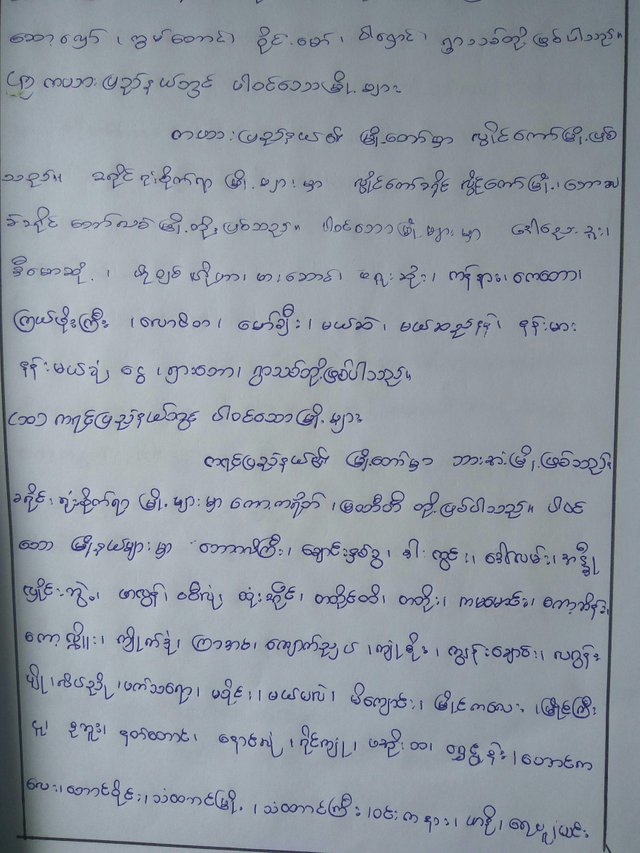 ဆော့လော် ၊ ကွမ်တောင်၊ ဝိုင်းမော် ၊ ဝါရှောင် ၊ ရွာသစ်တို့ ဖြစ်ပါသည်။
ကယားပြည်နယ်တွင် ပါဝင်သောမြို့များ
ကယားပြည်နယ်၏ မြို့တော်မှာ လွိုင်ကော်မြို့ဖြစ်
သည်။ ခရိုင်ရုံးစိုက်ရာ မြို့များမှာ လွိုင်ကော်ခရိုင် လွိုင်ကော်မြို့၊ ဘောလ
ခဲခရိုင် ဘော်လခဲမြို့တို့ဖြစ်သည်။ ပါဝင်သောမြို့များမှာ ဒေါညေးခူး၊
ဒီမောဆို့ ၊ ဖရူးဆိုး၊ ကန်နား၊ ကေထော၊
ကြယ်ဖိုးကြီး ၊ လောပိတ ၊ မော်ချီး ၊ မယ်ဆဲ ၊ မယ်ဆည်နန် ၊ နန်းမား
နန်းမယ်ခုံ ငွေ ၊ ရှားတော၊ ရွာသစ်တို့ဖြစ်ပါသည်။
ကရင်ပြည်နယ်တွင် ပါဝင်သောမြို့များ
ကရင်ပြည်နယ်၏ မြို့တော်မှာ ဘားအံမြို့ဖြစ်သည်။
ခရိုင်ရုံးစိုက်ရာ မြို့များမှာ ကော့ကရိတ် ၊ မြဝတီတို့ဖြစ်ပါသည်။ ပါဝင်
သော မြို့နယ်များမှာ ဘောဂလိကြီး၊ ချောင်းနှစ်ခွ ၊ ဒါးကွင်း၊ ဒေါလမ်း၊
လှိုင်းဘွဲ့၊ ဖာပွန်၊ ထုံးအိုင်၊ ကထိုင်တိ၊ ကတိုး၊ ကမမောင်း၊ ကော့သိန်း၊
ကော့လျှိုး၊ ကျိုက်ဒုံ၊ ကြာအင်း၊ ကျောက်ညှပ် ၊ ကျုံစိုး ၊ ကျွန်းချောင်း၊ လဂွန်း
ဖက်သရော၊ မရိုင်း၊ မယ်ပလဲ ၊ မိကျောင်း၊ မြိုင်ကလေး၊ မြိုင်ကြီး
ငူ၊ နဘူး၊ နတ်တောင်၊ နောင်လုံ ၊ ဝိုင်ကျုံ၊ ရွှေဂွန်း ၊ တောင်က
လေး၊ တောင်ဝိုင်း၊ သံတောင်မြို့ ၊ သံတောင်ကြီး၊ ဝင်းကနား၊